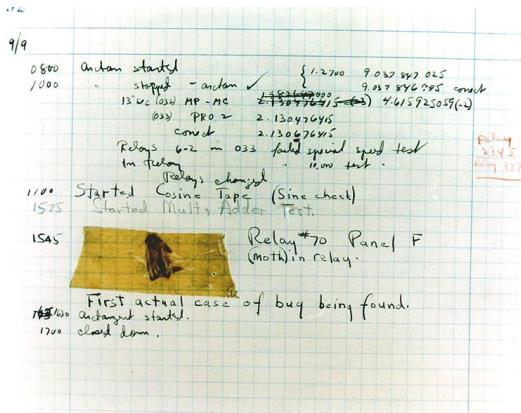 9/9
0800 arctan started { 1.2700 9.037 847 025
1000 " stopped - arctan ✓ 9.037 846 995 correct
13"uc (032) MP-MC 2.130476415 (-3) 4.615925059(-2)
(033) PRO 2 2.130476415
correct 2.130676415
Relays 6-2 in 033 failed special speed test
In relay " 10,000 test.
Relays changed
Relay
2145
Relay 337
1100 Started Cosine Tape (Sine check)
1525 Started Mult+Adder Test.
1545 Relay #70 Panel F
(Moth) in relay.
First actual case of bug being found.
1630 arctangent started.
1700 closed down.